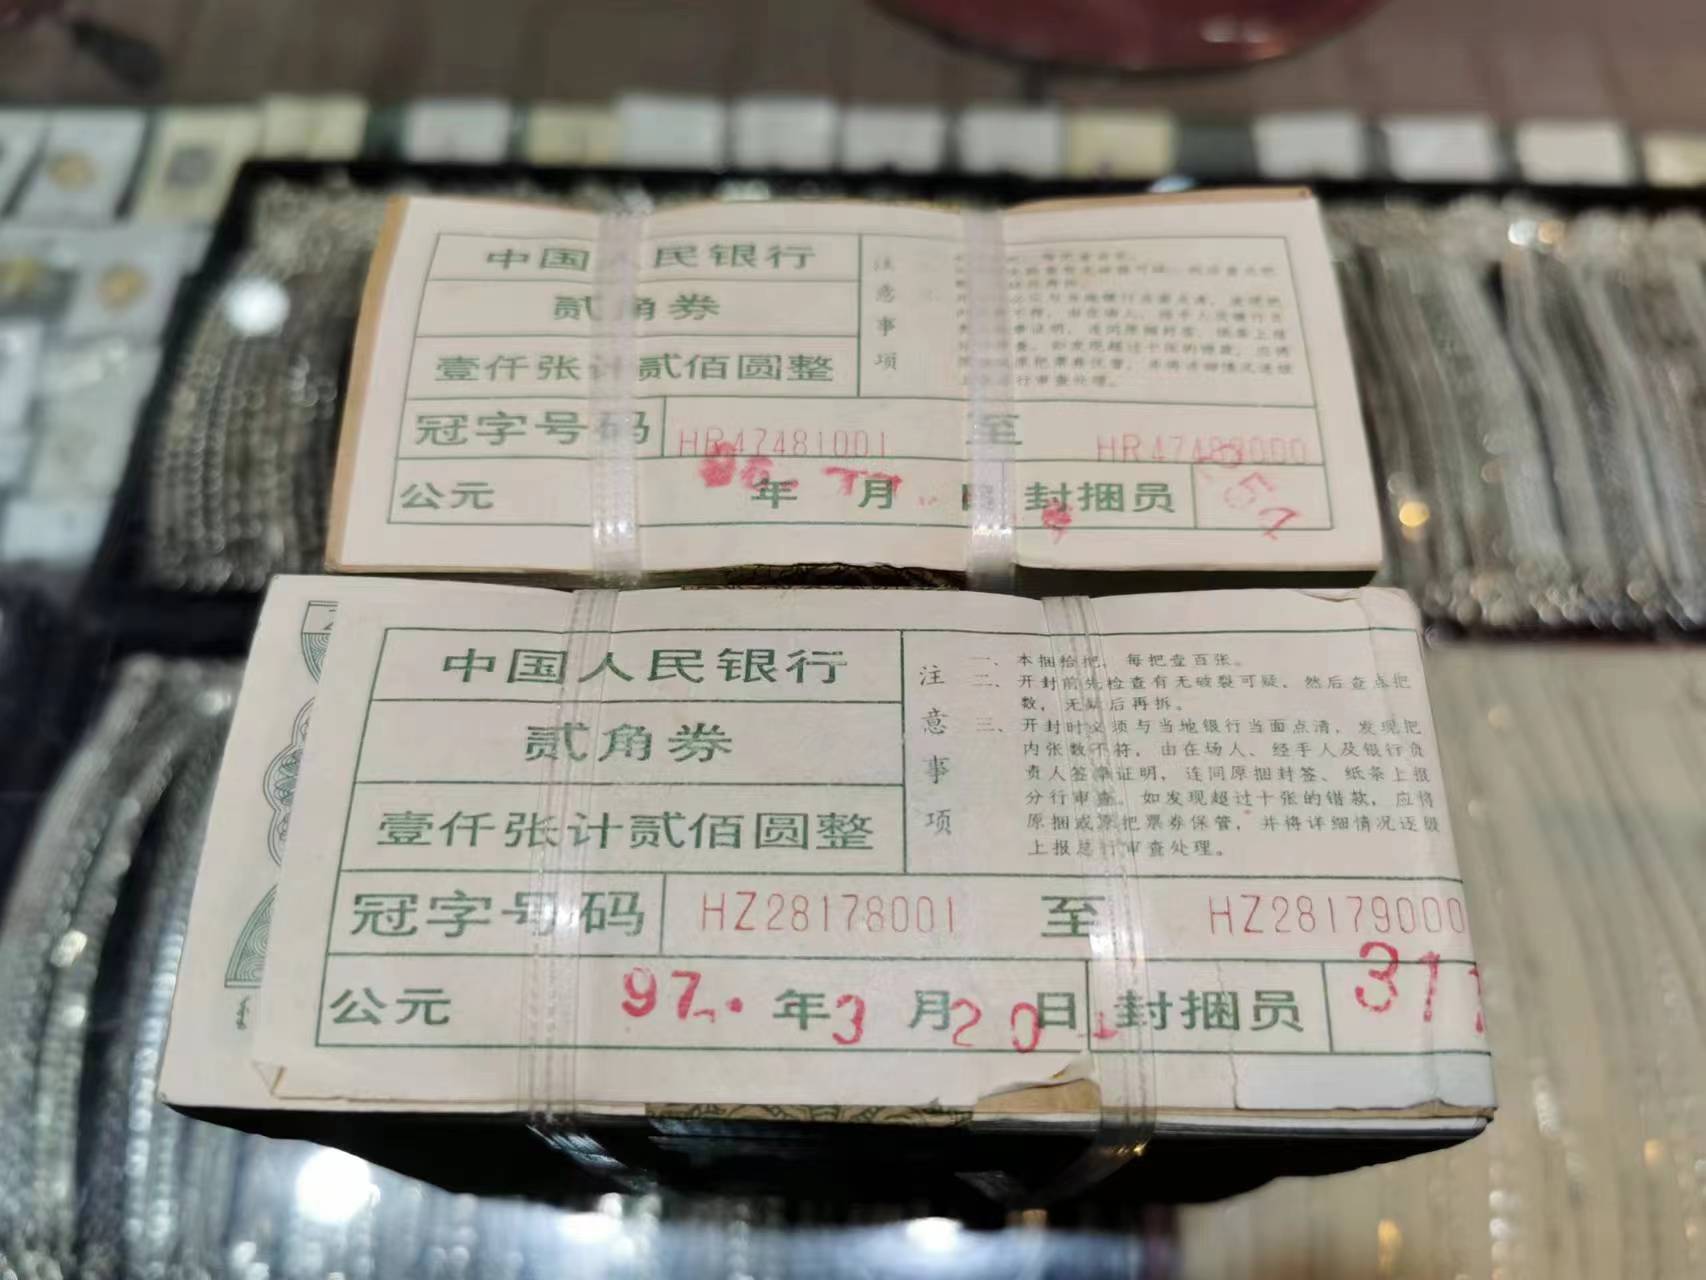 中国人民银行
贰角券
壹仟张计贰佰圆整
注意事项
冠字号码 HR47481001 至
公元 年 月 日 封捆员
中国人民银行
贰角券
壹仟张计贰佰圆整
注意事项
一、本捆拾把,每把壹百张。
二、开封前先检查有无破裂可疑,然后查点把
数,无疑后再拆。
三、开封时必须与当地银行当面点清,发现把
内张数不符,由在场人、经手人及银行负
责人签章证明,连同原捆封签、纸条上报
分行审查。如发现超过十张的错款,应将
原捆或原把票券保管,并将详细情况逐级
上报总行审查处理。
冠字号码 HZ28178001 至 HZ28179000
公元 97. 年 3 月 20 日 封捆员 311